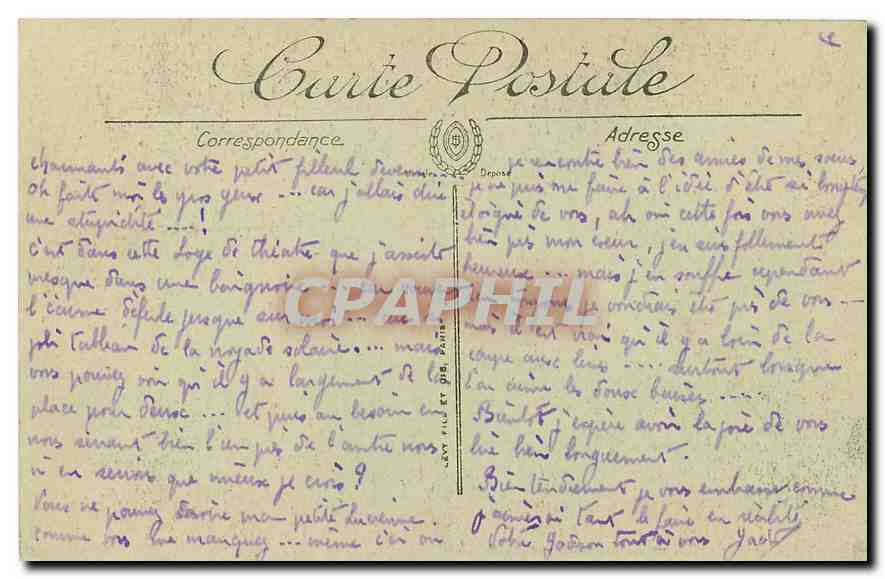 Carte Postale
Correspondance
Adresse
Déposé
charmants avec votre petit filleul
Oh faites moi les gros yeux ... car j'allais dire
une stupidité ....!
C'est dans cette Loge de théâtre que j'assiste
presque dans une baignoire
l'écume déferle presque sur
joli tableau de la noyade solaire .... mais
vous pouvez voir qu'il y a largement de la
place pour deux ... et puis au besoin en
nous serrant bien l'un près de l'autre nous
n'en serions que mieux je crois ?
Vous ne pouvez savoir ma petite Lucienne
comme vous me manquez ... même ici où
je rencontre bien des amies de mes soeurs
je ne puis me faire à l'idée d'être si longtemps
éloigné de vous, ah oui cette fois vous avez
bien pris mon coeur, j'en suis follement
heureux ... mais j'en souffre cependant
je voudrais être près de vous —
mais il est vrai qu'il y a loin de la
coupe aux lèvres .... surtout lorsque
l'on aime les doux baisers .....
Bientôt j'espère avoir la joie de vous
lire bien longuement.
Bien tendrement je vous embrasse comme
j'aimerai tant le faire en réalité
Votre tout à vous
LÉVY FILS ET CIE, PARIS
CPAPHIL